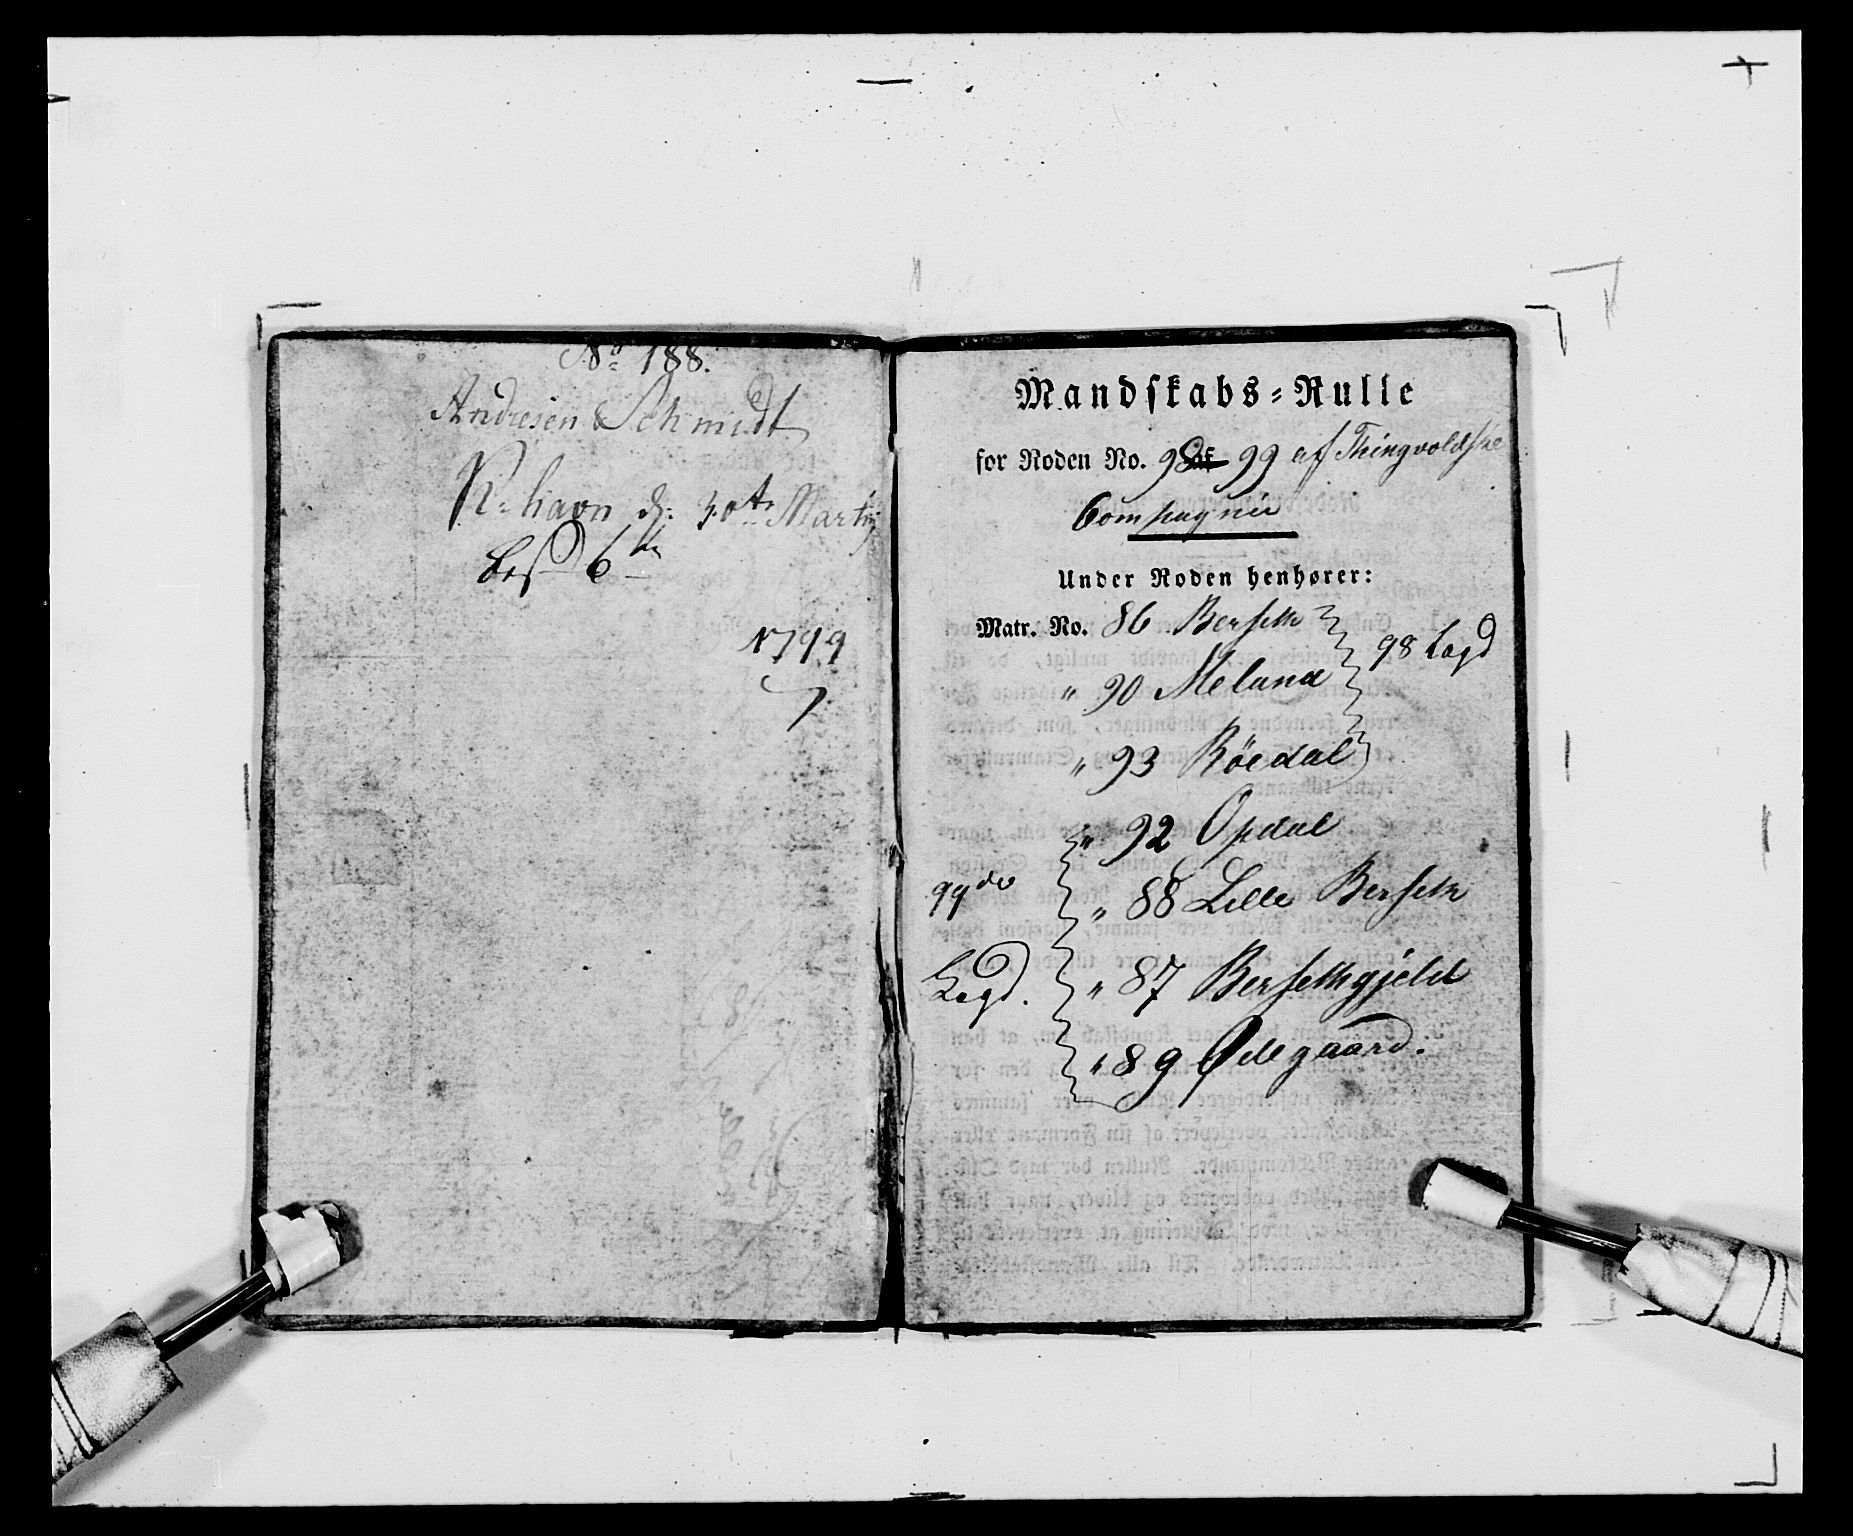 No 188.
Andresen & Schmidt
K. havn d: 30te Martij
6
1799
Mandskabs-Rulle
for Roden No. 98 99 af Thingvoldske
Compagnie
Under Roden henhører:
Matr. No. 86 Berseth
" 90 Meland
98 Lagd
" 93 Röedal
" 92 Opdal
99de
" 88 Lille Berseth
Lægd.
" 87 Bersethgjeld
" 89 Ødegaard.